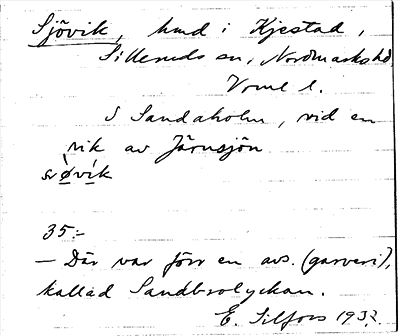 Sjövik, hmd i Kjestad,
Silleruds sn, Nordmarks hd
Vrml l.
S Sandaholm, vid en
vik av Järnsjön
35:-
— Där var förr en avs. (garveri),
kallad Sandbrolyckan.
E. Silfors 1932